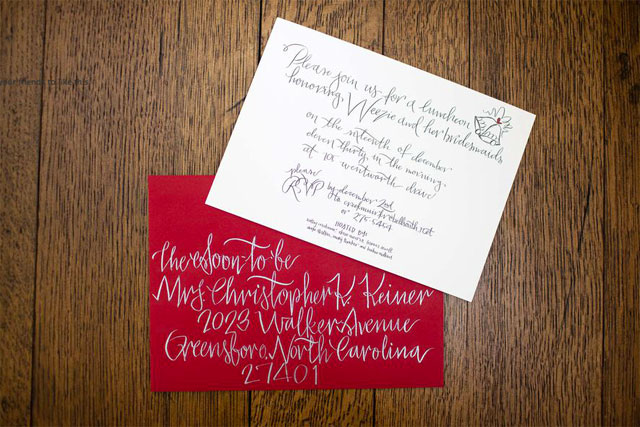 Please join us for a luncheon
honoring Weezie and her bridesmaids
on the sixteenth of december
eleven thirty in the morning
at 101 wentworth drive
please
RSVP by december 2nd
to
or 275-5454
HOSTED BY:
The Soon to be
Mrs. Christopher K. Keiner
2023 Walker Avenue
Greensboro, North Carolina
27401